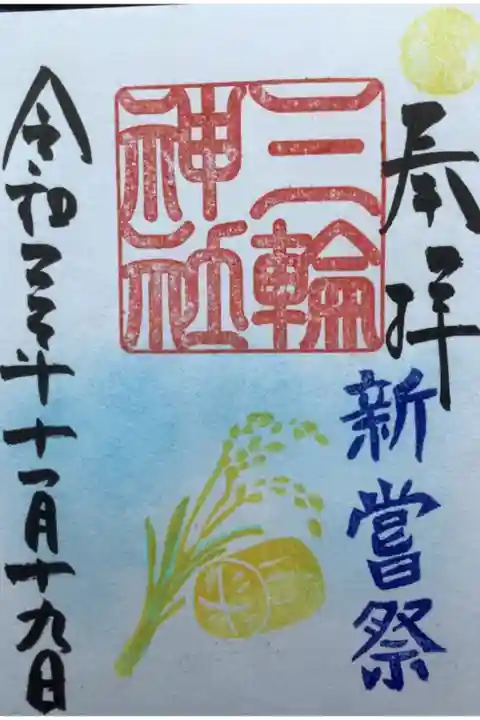 奉拝
新嘗祭
三輪
神社
令和五年十一月十九日